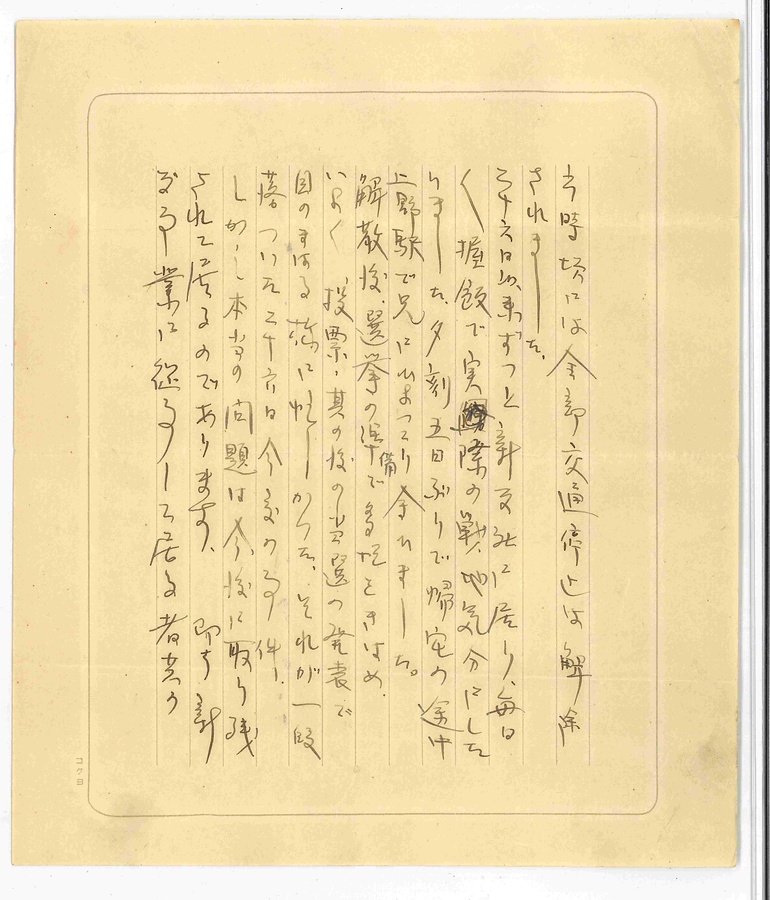 当時頃には全部交通停止は解除
されました。
二十六日以来ずっと新聞社に居り、毎日
く握飯で実際の戦地気分にした
りました。夕刻五日ぶりで帰宅の途中
上野駅で兄にひょっこり会ひました。
解散後、選挙の準備で多忙をきはめ、
いよく投票、其の後の当選の発表で
目のまはる様に忙しかった。それが一段
落ついた二十六日今度の事件、
しかし本当の問題は今後に取り残
されて居るのであります。即ち新
事業に従事して居る者共の
コクヨ